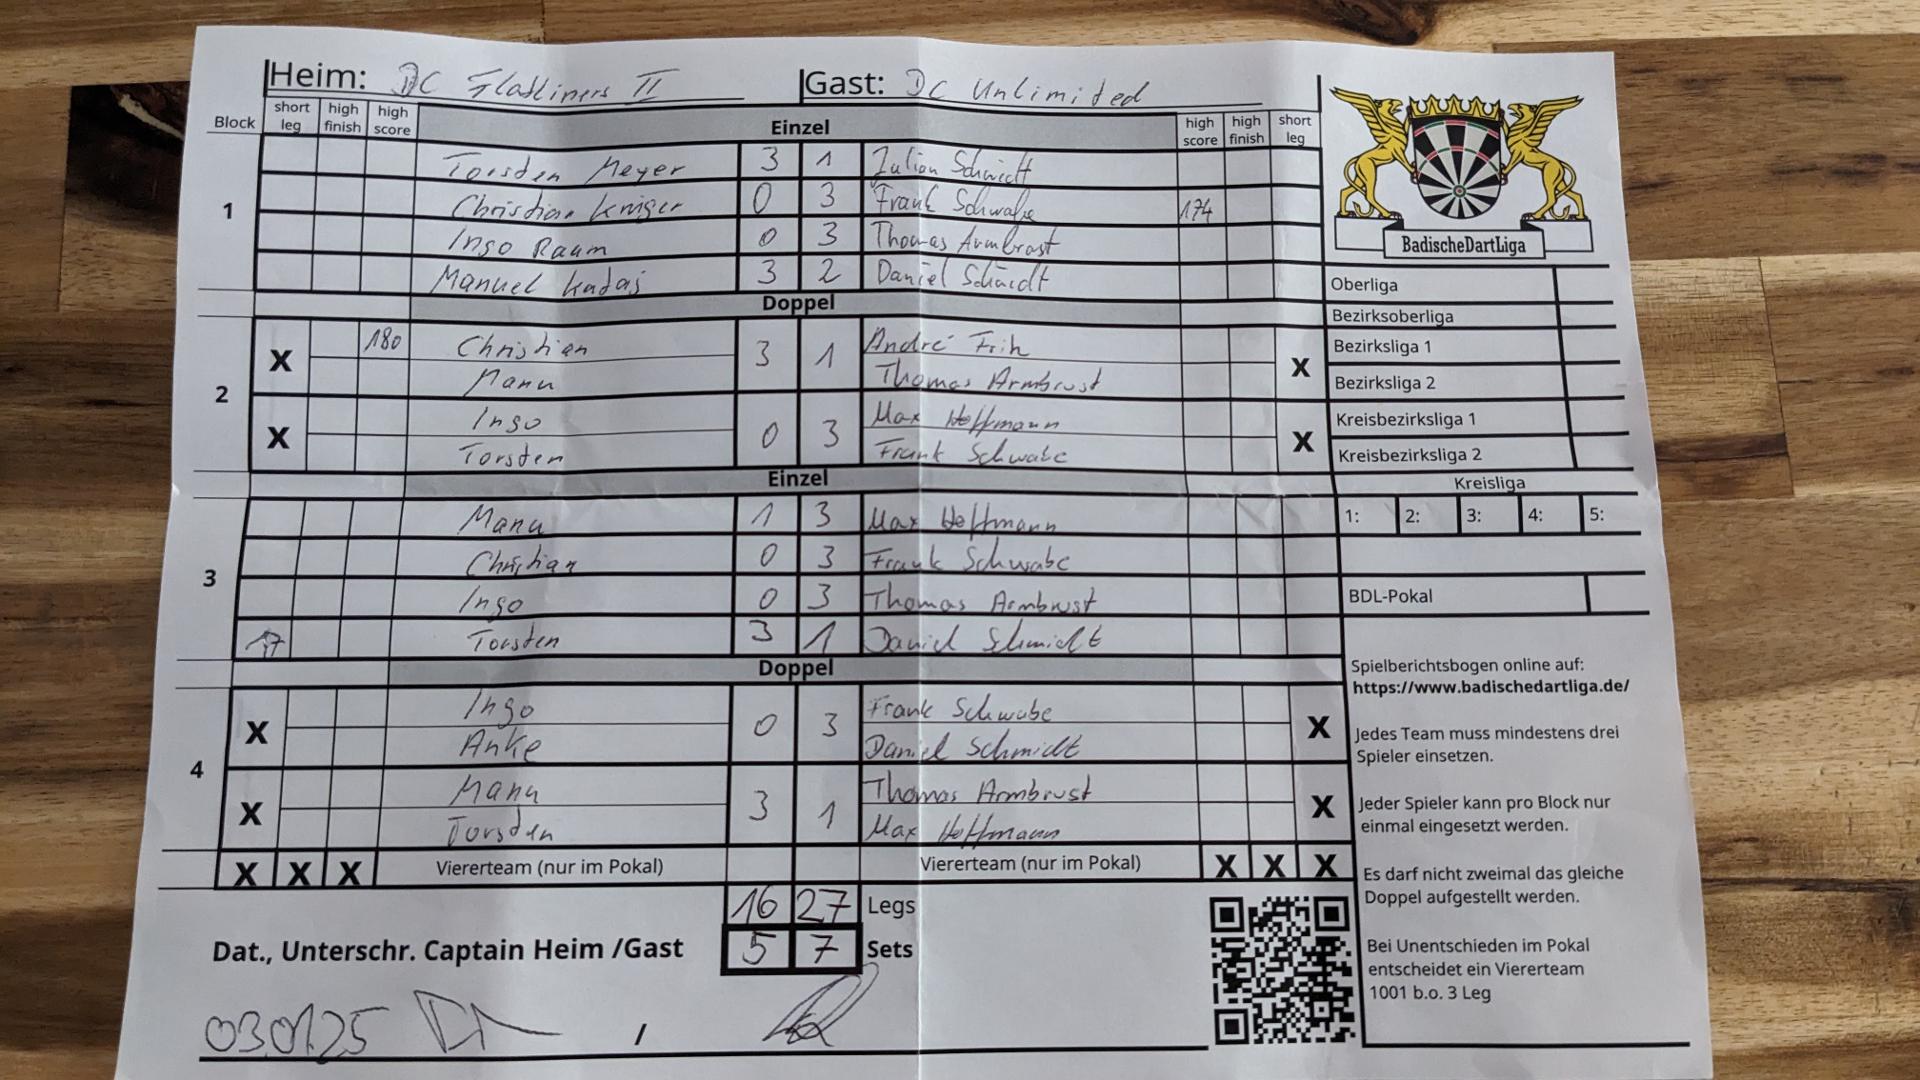 Heim: DC Flatliners II Gast: DC Unlimited
Block short leg high finish high score Einzel high score high finish short leg
1
Torsden Meyer 3 1 Julian Schmidt
Christian Krüger 0 3 Frank Schwabe 174
Ingo Raum 0 3 Thomas Armbrost
Manuel Kadas 3 2 Daniel Schmidt
Doppel
2
X 180 Christian 3 1 André Frih X
Manu Thomas Armbrust
X Ingo 0 3 Max Hoffmann X
Torsten Frank Schwabe
Einzel
3
Manu 1 3 Max Hoffmann
Christian 0 3 Frank Schwabe
Ingo 0 3 Thomas Armbrust
17 Torsten 3 1 Daniel Schmidt
Doppel
4
X Ingo 0 3 Frank Schwabe X
Anke Daniel Schmidt
X Manu 3 1 Thomas Armbrust X
Torsten Max Hoffmann
X X X Viererteam (nur im Pokal) Viererteam (nur im Pokal) X X X
16 27 Legs
Dat., Unterschr. Captain Heim /Gast 5 7 Sets
03.01.25 /
BadischeDartLiga
Oberliga
Bezirksoberliga
Bezirksliga 1
Bezirksliga 2
Kreisbezirksliga 1
Kreisbezirksliga 2
Kreisliga
1: 2: 3: 4: 5:
BDL-Pokal
Spielberichtsbogen online auf:
https://www.badischedartliga.de/
Jedes Team muss mindestens drei
Spieler einsetzen.
Jeder Spieler kann pro Block nur
einmal eingesetzt werden.
Es darf nicht zweimal das gleiche
Doppel aufgestellt werden.
Bei Unentschieden im Pokal
entscheidet ein Viererteam
1001 b.o. 3 Leg